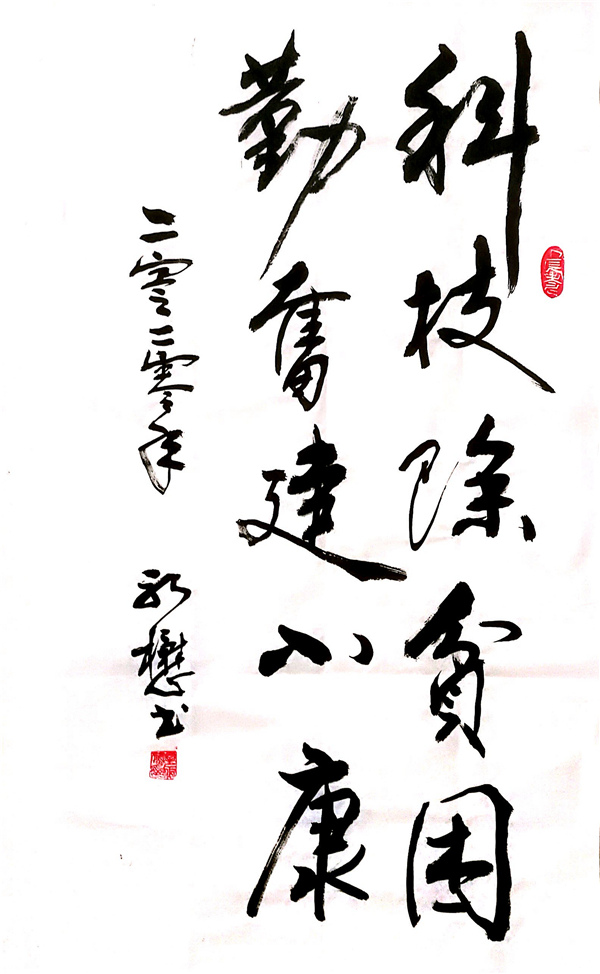 科技除贫困
勤奋建小康
二零二零年
懋书